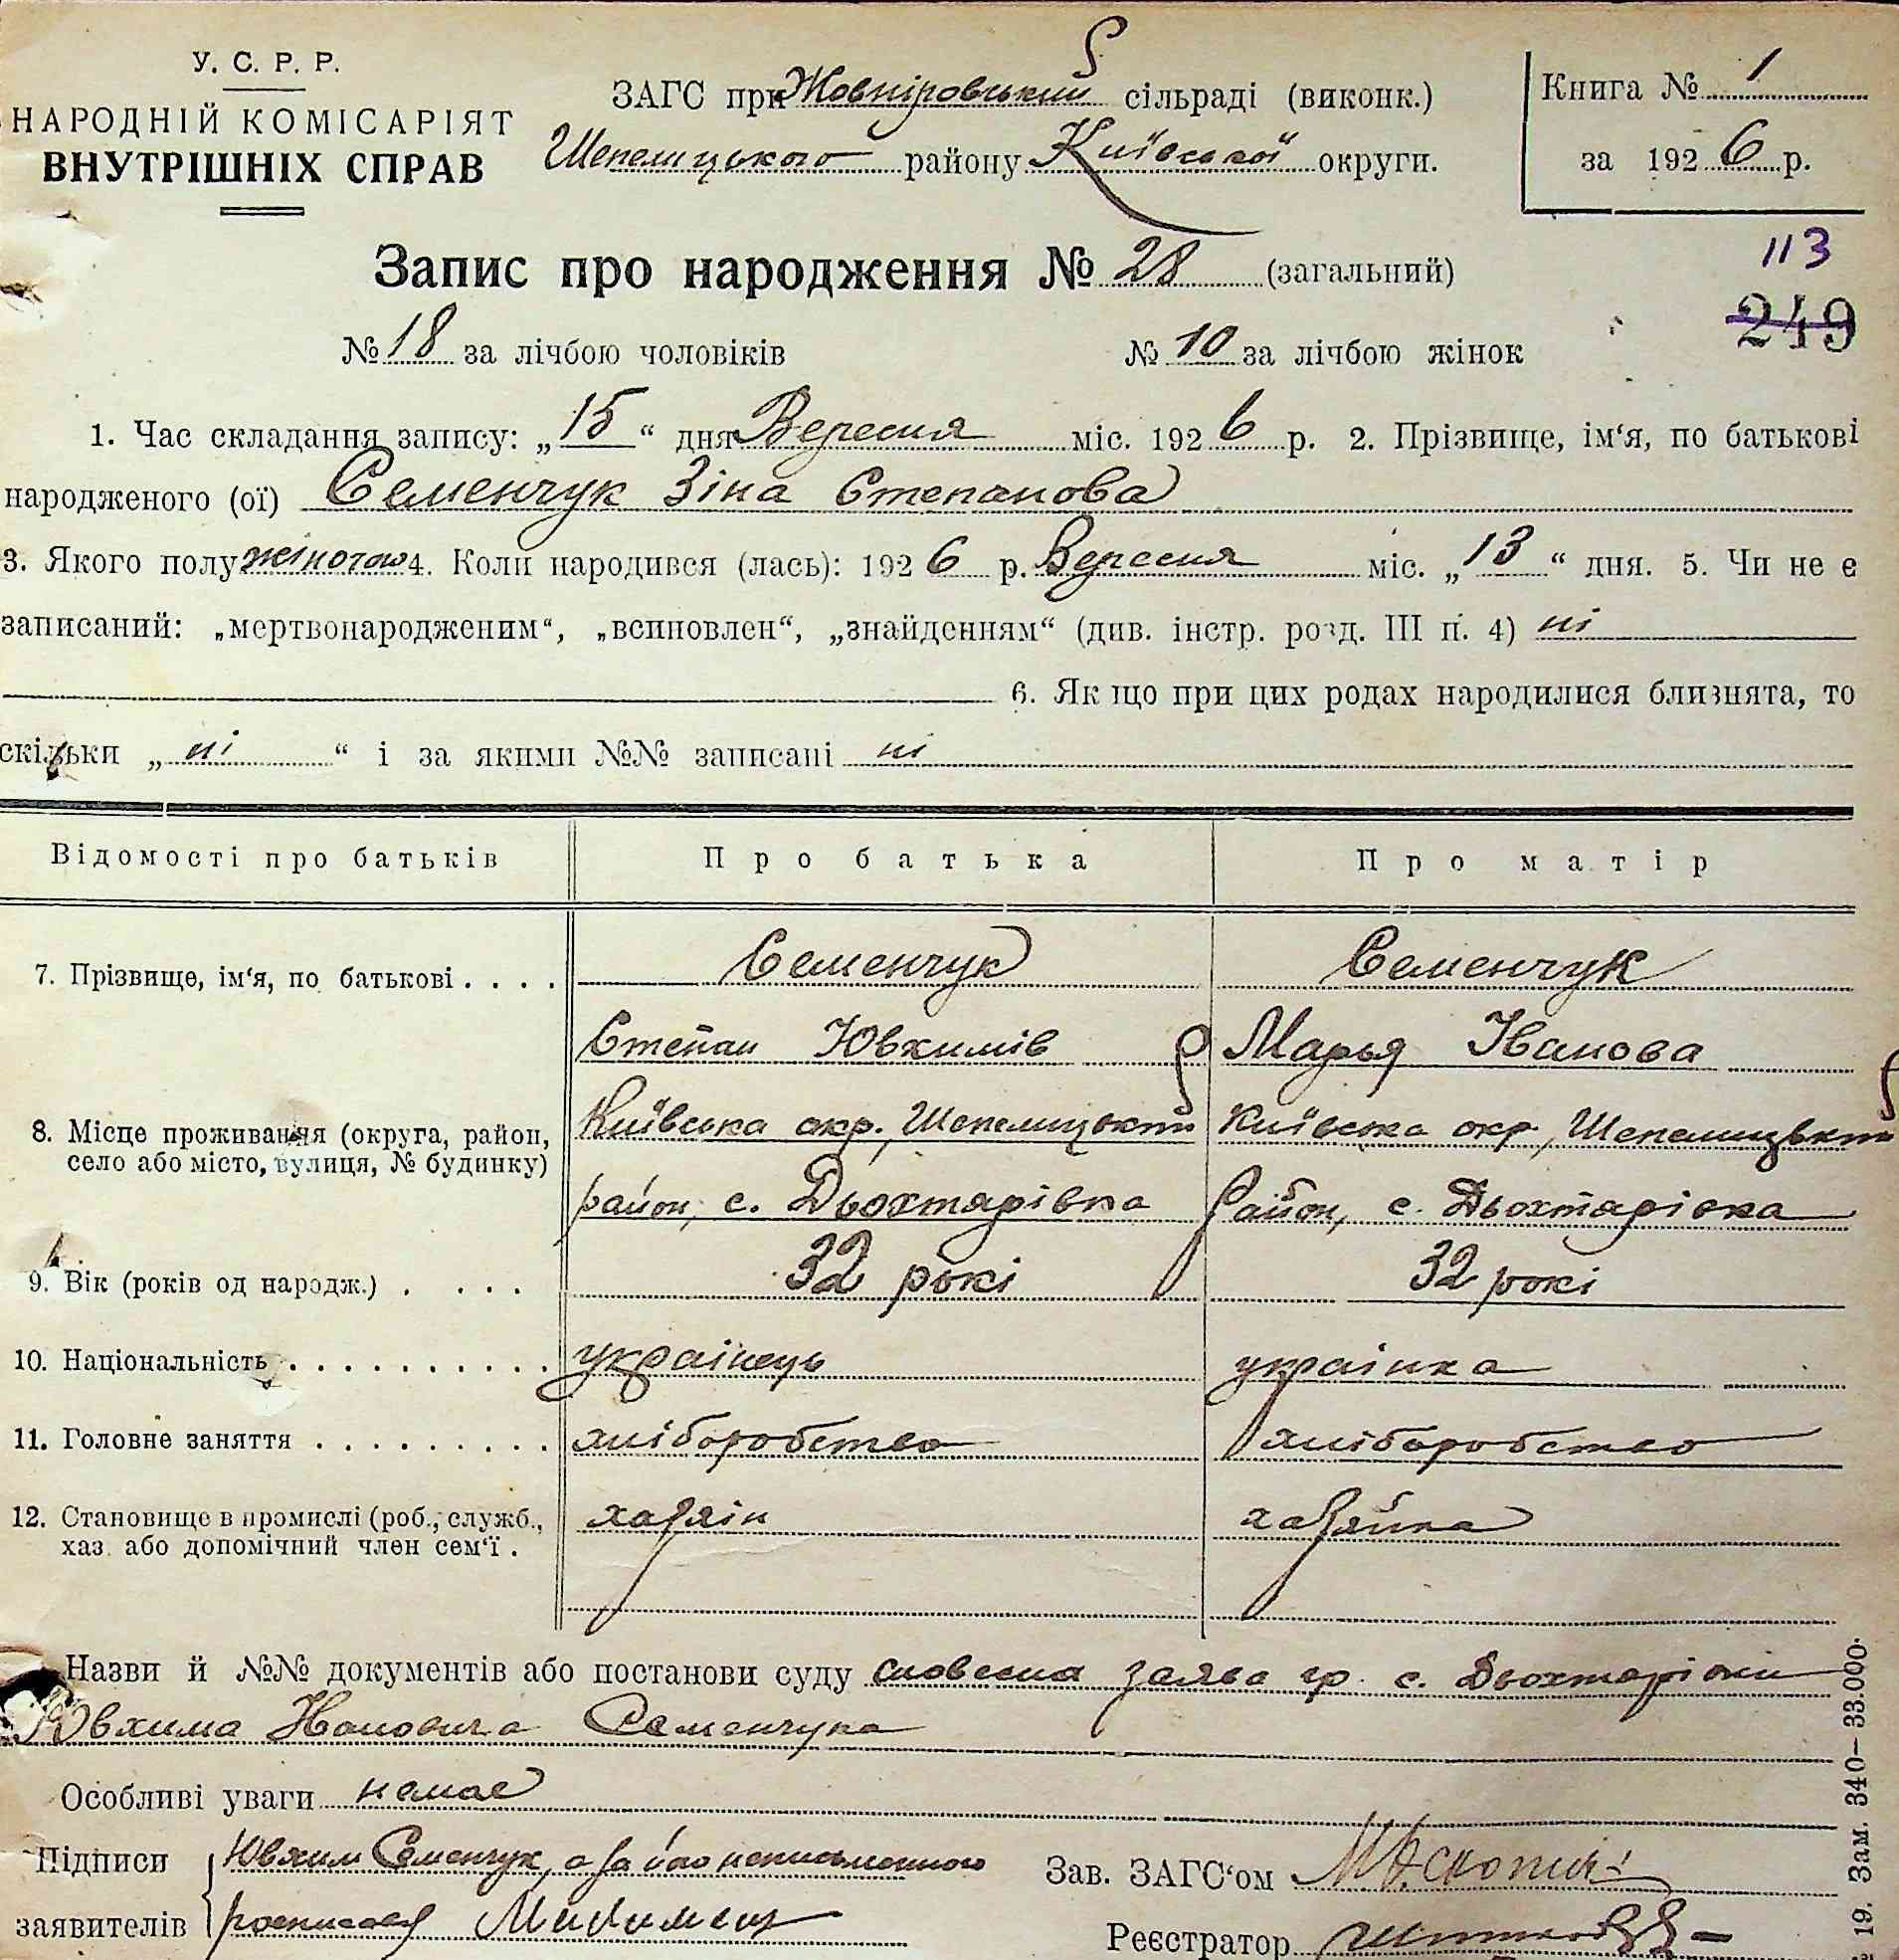 У. С. Р. Р.
НАРОДНІЙ КОМІСАРІЯТ
ВНУТРІШНІХ СПРАВ
ЗАГС при Жовніровський сільраді (виконк.)
Шепелицького району Київської округи.
Книга № 1
за 1926 р.
Запис про народження № 28 (загальний)
113
249
№ 18 за лічбою чоловіків № 10 за лічбою жінок
1. Час складання запису: „15“ дня Вересня міс. 1926 р. 2. Прізвище, ім‘я, по батькові
народженого (ої) Семенчук Зіна Степанова
3. Якого полу жіночого 4. Коли народився (лась): 1926 р. Вересня міс. „13“ дня. 5. Чи не є
записаний: „мертвонародженим“, „всиновлен“, „знайденням“ (див. інстр. розд. III п. 4) ні
6. Якщо при цих родах народилися близнята, то
скільки „ні“ і за якими №№ записані ні
Відомості про батьків Про батька Про матір
7. Прізвище, ім‘я, по батькові . . . . Семенчук Семенчук
Степан Ювхимів Марья Іванова
8. Місце проживання (округа, район, Київська окр., Шепелицький Київська окр., Шепелицький
село або місто, вулиця, № будинку)
район, с. Дьохтарівка район, с. Дьохтарівка
9. Вік (років од народж.) . . . . 32 рокі 32 рокі
10. Національність . . . . . . . . . . українець українка
11. Головне заняття . . . . . . . . . . хліборобство хліборобство
12. Становище в промислі (роб., служб., хазяін хазяйка
хаз. або допомічний член сем‘ї .
Назви й №№ документів або постанови суду словесна заява гр. с. Дьохтарівки
Ювхима Івановича Семенчука
Особливі уваги немає
Підписи Ювхим Семенчук, а за його неписьменного
заявителів росписався
Зав. ЗАГС‘ом
Реєстратор
19. Зам. 340—33.000.